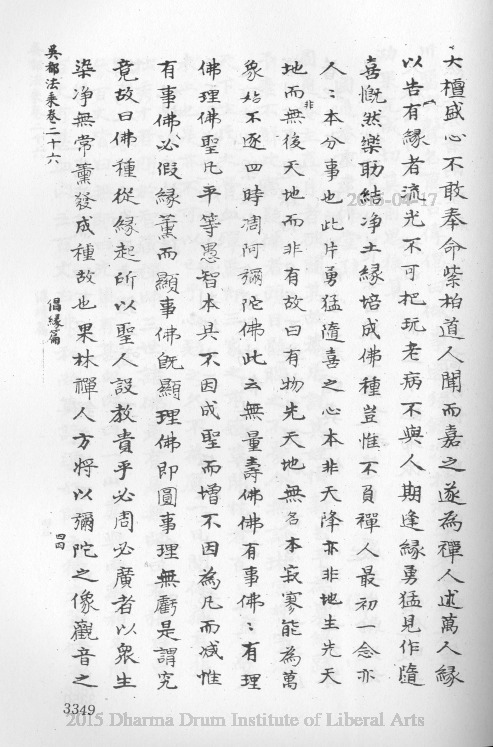 大檀盛心不敢奉命柴柏道人聞而嘉之遂為禪人述萬人緣
以告有緣者流光不可把玩老病不與人期逢緣勇猛見作隨
喜慨然樂助結淨土緣培成佛種豈惟不負禪人最初一念亦
人〻本分事也此片勇猛隨喜之心本非天降亦非地生先天
地而無後天地而非有故曰有物先天地無名本寂寥能為萬
非
象始不逐四時凋阿彌陀佛此云無量壽佛佛有事佛〻有理
佛理佛聖凡平等愚智本具不因成聖而增不因為凡而減惟
有事佛必假緣薰而顯事佛既顯理佛即圓事理無虧是謂究
竟故曰佛種從緣起所以聖人設教貴乎必周必廣者以眾生
染净無常薰發成種故也果林禪人方將以彌陀之像觀音之
吳都法乘卷二十六
倡緣篇
四四
3349
2015-04-17
2015 Dharma Drum Institute of Liberal Arts